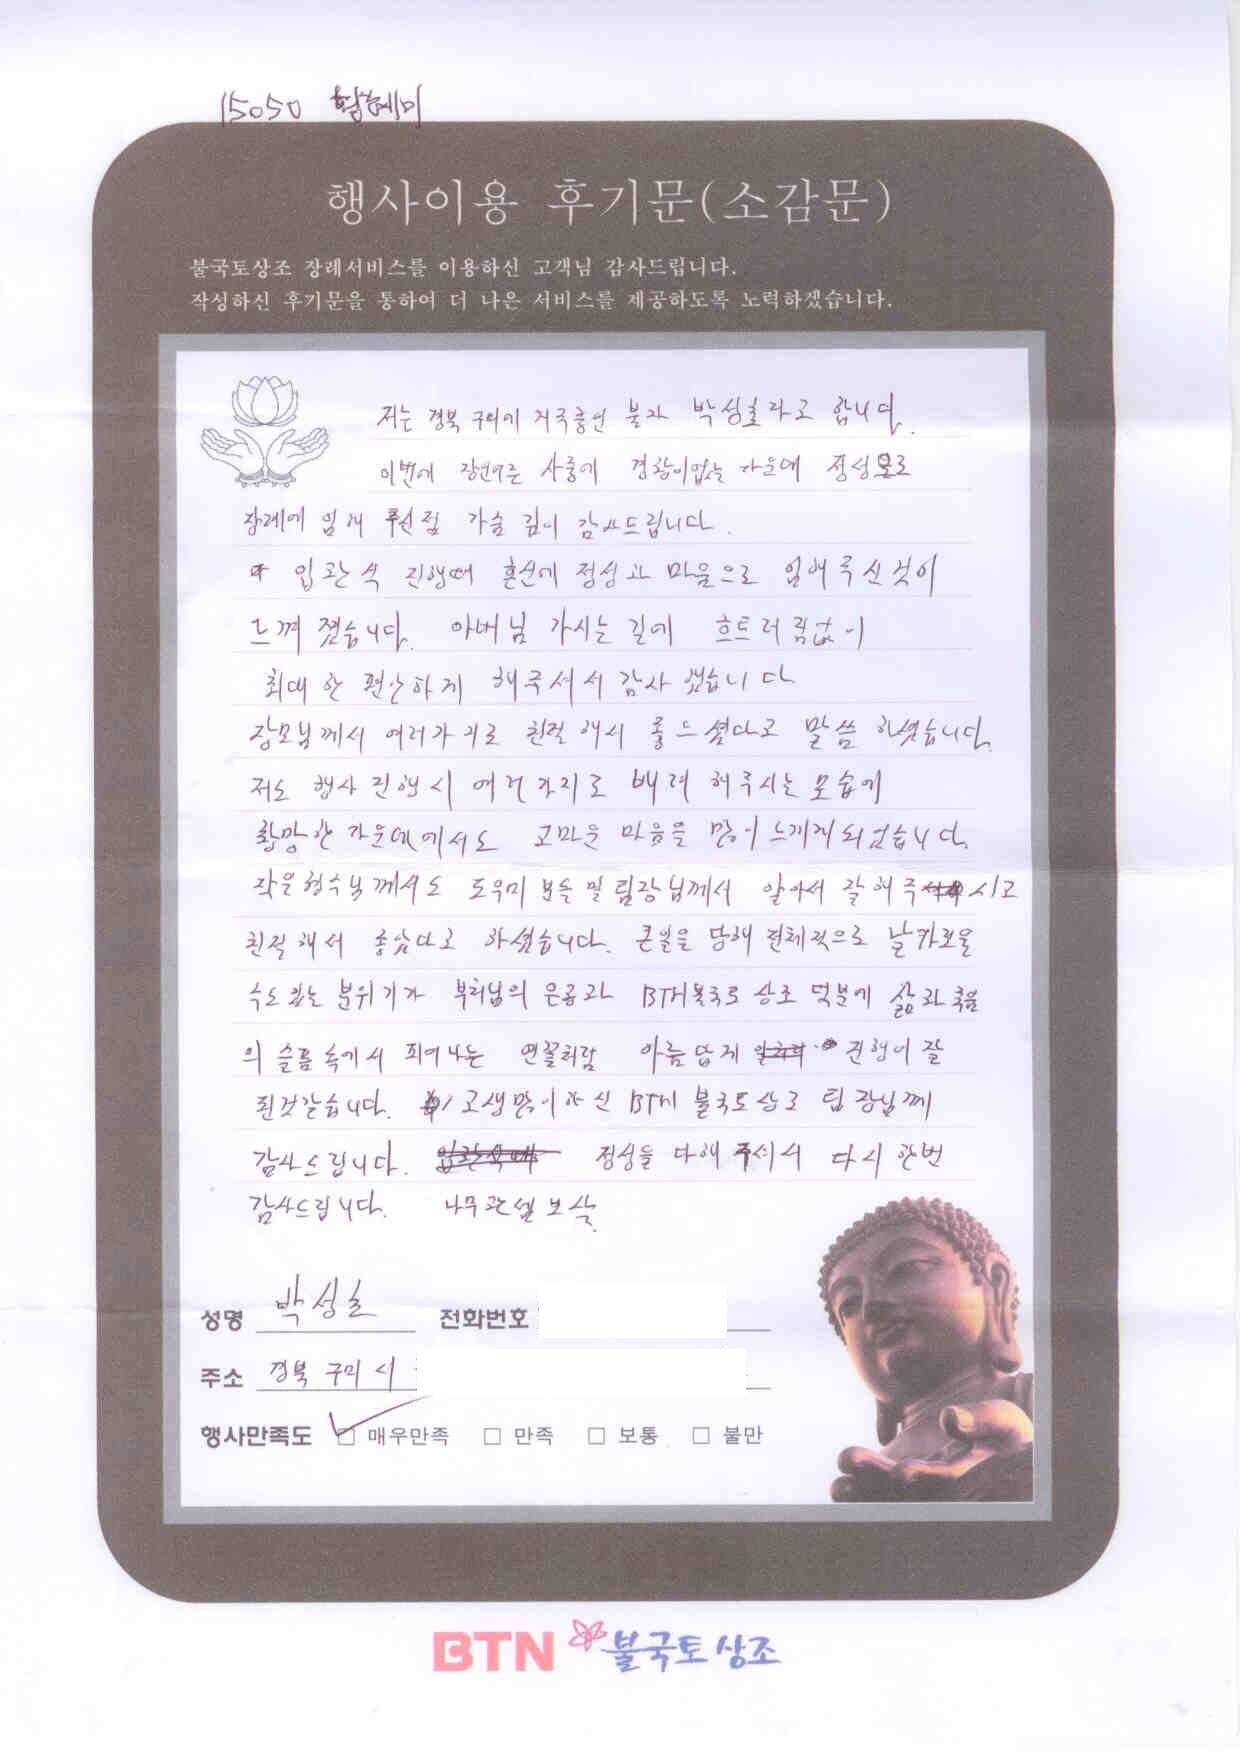 15050
행사이용 후기문(소감문)
불국토상조 장례서비스를 이용하신 고객님 감사드립니다.
작성하신 후기문을 통하여 더 나은 서비스를 제공하도록 노력하겠습니다.
저는 경북 구미에 거주중인 불자 박성호라고 합니다.
이번에 장인어른 사중에 경황이없는 가운데 정성으로
장례에 임해 주신점 가슴 깊이 감사드립니다.
입관식 진행때 혼신에 정성과 마음으로 임해주신것이
느껴졌습니다. 아버님 가시는 길에 흐트러짐없이
최대한 편안하게 해주셔서 감사했습니다
장모님께서 여러가지로 친절해서 좋으셨다고 말씀하셨습니다.
저도 행사 진행시 여러가지로 배려해주시는 모습에
황망한 가운데에서도 고마운 마음을 많이 느끼게되었습니다.
작은형수님께서도 도우미 분들 및 팀장님께서 알아서 잘해주시고
친절해서 좋았다고 하셨습니다. 큰일을 당해 전체적으로 날카로울
수도 있는 분위기가 부처님의 은공과 BTN불국토 상조 덕분에 삶과 죽음
의 슬픔속에서 피어나는 연꽃처럼 아름답게 진행이 잘
된것같습니다. 고생많이하신 BTN 불국토상조 팀장님께
감사드립니다. 정성을 다해 주셔서 다시 한번
감사드립니다. 나무관셈보살.
성명 박성호 전화번호
주소 경북 구미시
행사만족도 □ 매우만족 □ 만족 □ 보통 □ 불만
BTN 불국토상조